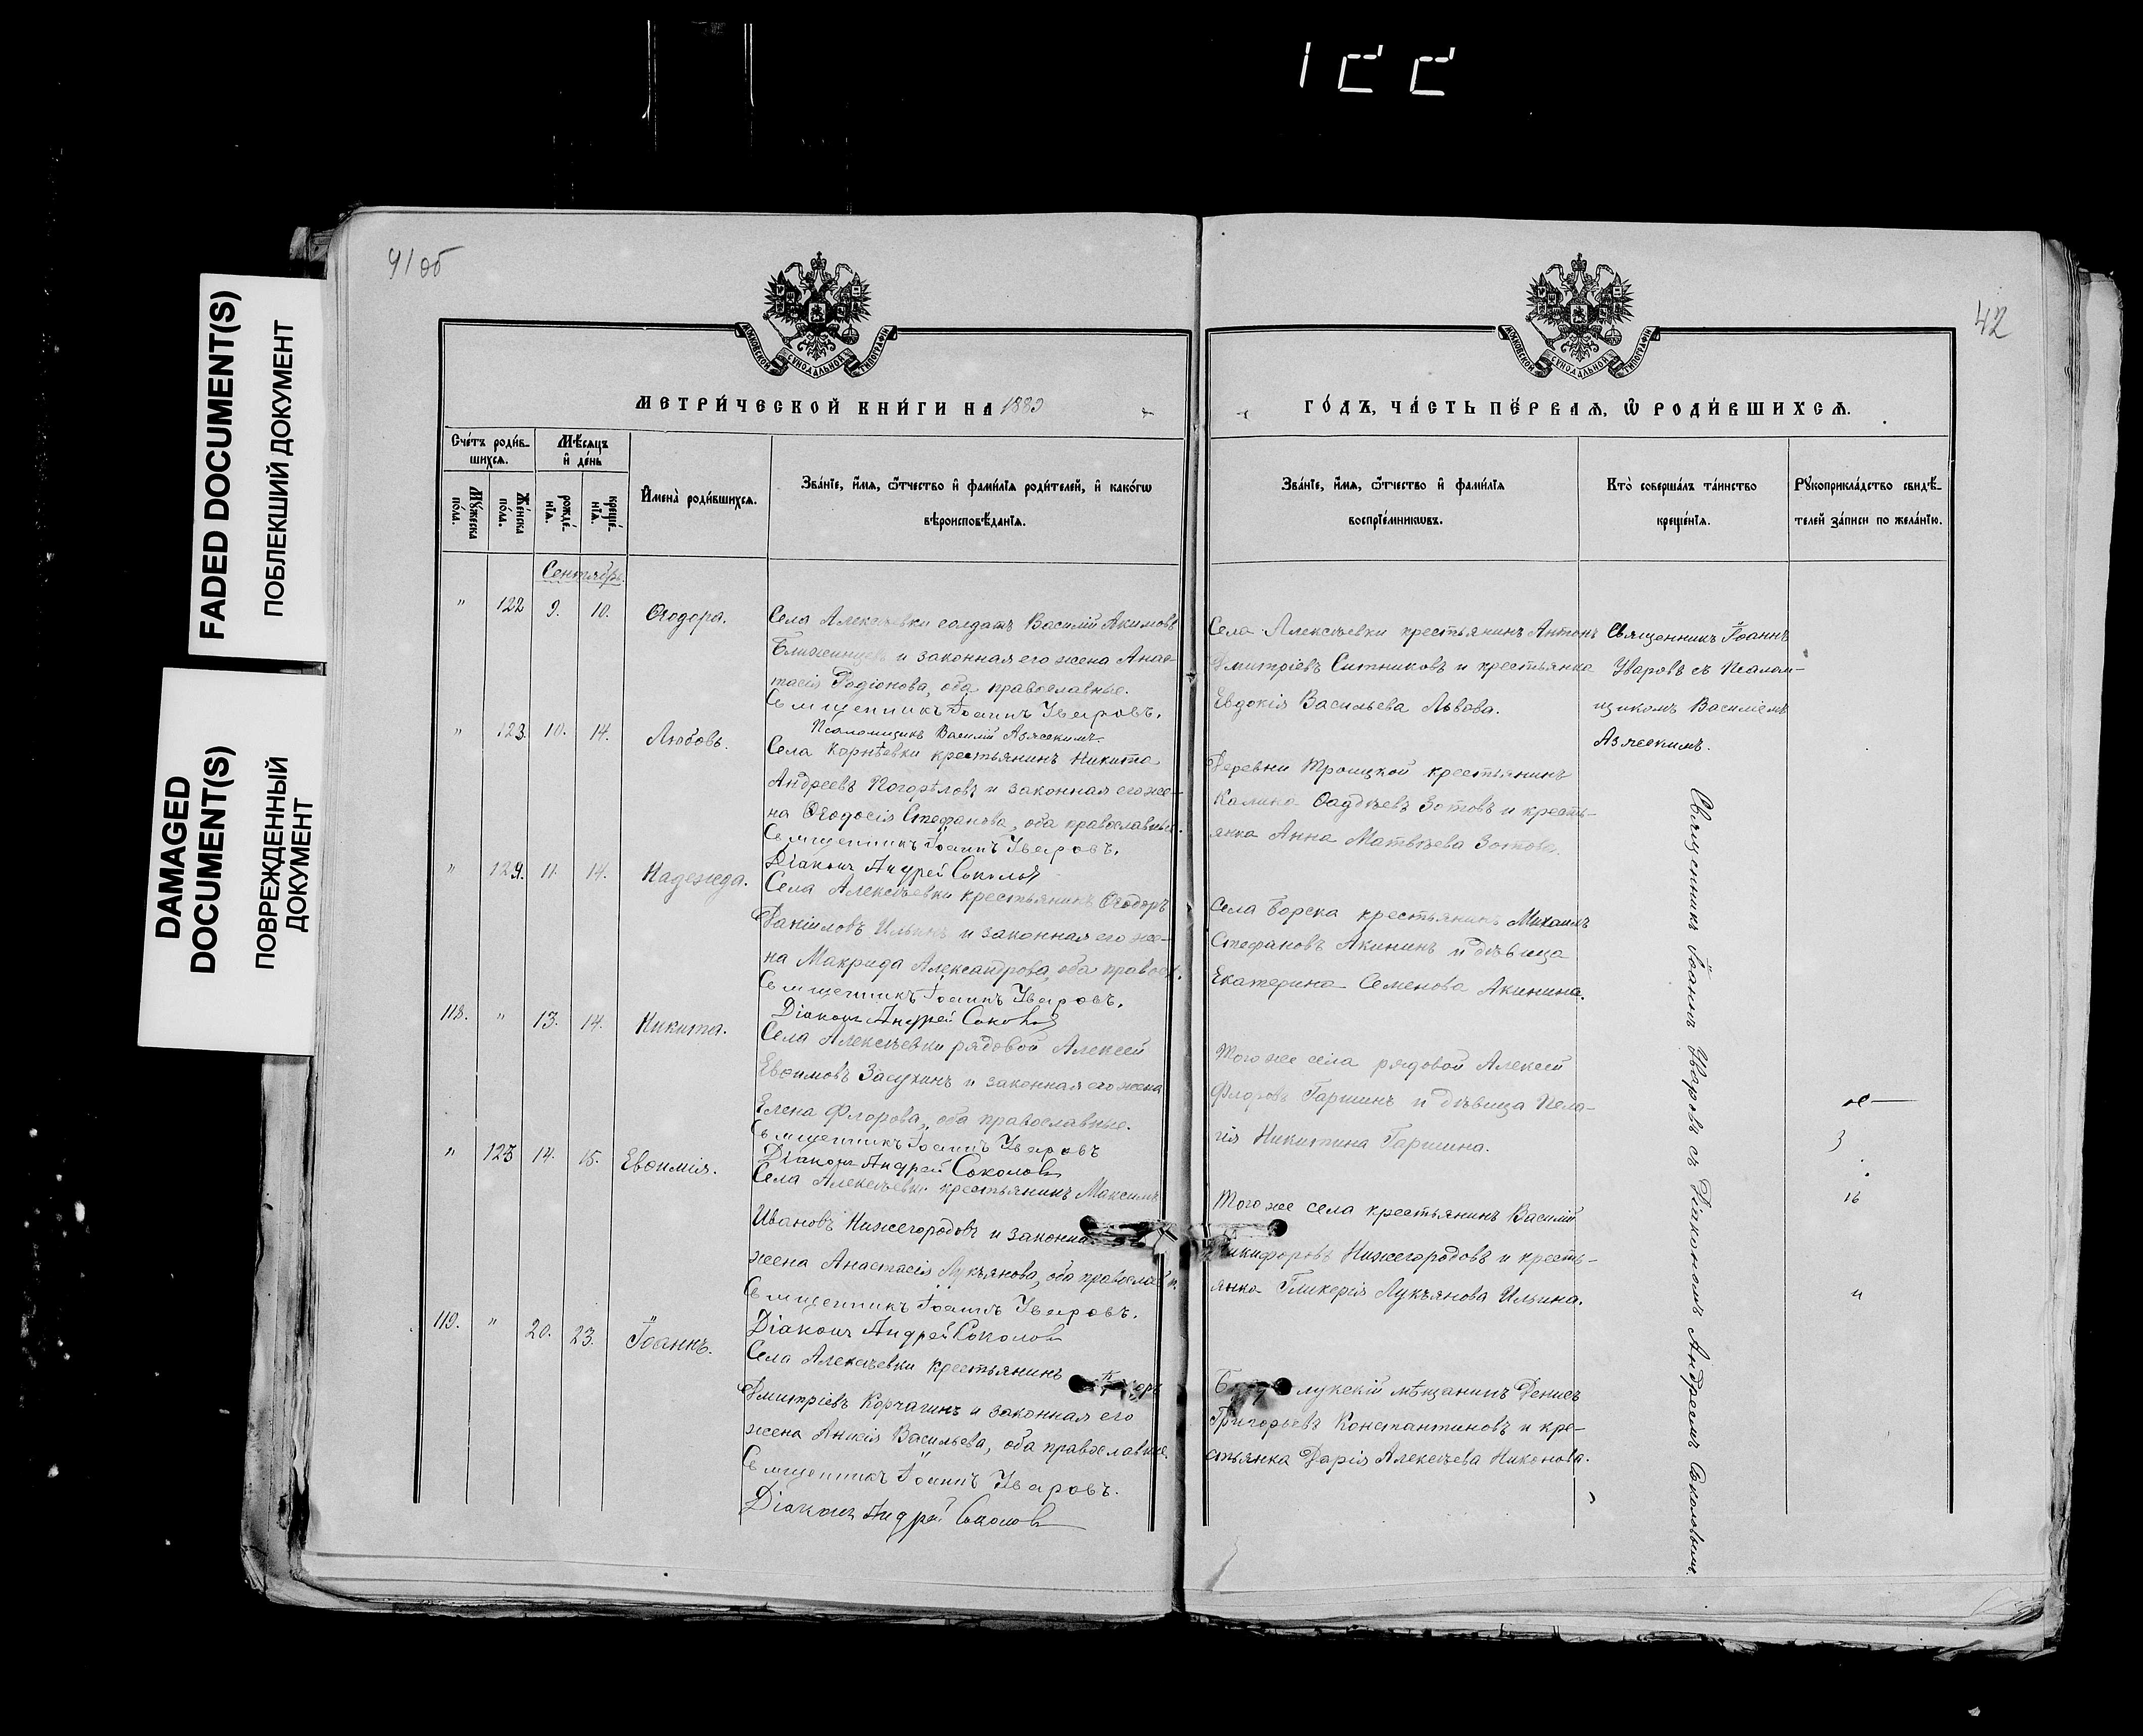 FADED DOCUMENT(S)
ПОБЛЕКШИЙ ДОКУМЕНТ
DAMAGED
DOCUMENT(S)
ПОВРЕЖДЕННЫЙ
ДОКУМЕНТ
41 об
42
МОСКОВСКОЙ СУНОДАЛЬНОЙ ТИПОГРАФІИ
МОСКОВСКОЙ СУНОДАЛЬНОЙ ТИПОГРАФІИ
МЕТРИ́ЧЕСКОЙ КНИ́ГИ НА 1883
ГО́ДЪ, ЧА́СТЬ ПЕ́РВАЯ, Ѿ РОДИ́ВШИХСЯ.
Сче́тъ роди́в-
шихся.
Мѣ́сяцъ
и҆ де́нь
Мꙋжеска
по́ла.
Же́нска
по́ла.
рожде́-
нія.
креще́-
нія.
И҆мена̀ роди́вшихся.
Зва́ніе, и҆́мя, ѻ҆́тчество и҆ фами́лія роди́телей, и҆ како́гѡ
вѣроисповѣ́данія.
Зва́ніе, и҆́мя, ѻ҆́тчество и҆ фами́лія
воспріе́мникѡвъ.
Кто̀ соверша́лъ та́инство
креще́нія.
Рꙋкоприкла́дство свидѣ́-
телей за́писи по жела́нію.
Сентябрь.
" 122 9. 10. Ѳеодора.
Села Алексѣевки солдатъ Василій Акимовъ
и законная его жена Анас-
тасія Родіонова, оба православные.
Священникъ Іоаннъ Уваровъ.
Псаломщикъ Василій Азясскимъ.
Села Алексѣевки крестьянинъ Антонъ
Дмитріевъ Ситниковъ и крестьянка
Евдокія Васильева Львова.
Священникъ Іоаннъ
Уваровъ съ Псалом-
щикомъ Василіемъ
Азясскимъ.
" 123. 10. 14. Любовь.
Села Корнѣевки крестьянинъ Никита
Андреевъ Погорѣловъ и законная его же-
на Ѳеодосія Стефанова, оба православные.
Священникъ Іоаннъ Уваровъ.
Діаконъ Андрей Соколовъ
Деревни Троицкой крестьянинъ
Калина Ѳаддѣевъ Зотовъ и кресть-
янка Анна Матвѣева Зотова.
" 124. 11. 14. Надежда.
Села Алексѣевки крестьянинъ Ѳеодоръ
Даніиловъ Ильинъ и законная его же-
на Макрида Александрова, оба правосл.
Священникъ Іоаннъ Уваровъ.
Діаконъ Андрей Соколовъ
Села Борска крестьянинъ Михаилъ
Стефановъ Акининъ и дѣвица
Екатерина Семенова Акинина.
118. " 13. 14. Никита.
Села Алексѣевки рядовой Алексей
Евѳимовъ Засухинъ и законная его жена
Елена Флорова, оба православные.
Священникъ Іоаннъ Уваровъ
Діаконъ Андрей Соколовъ
Того же села рядовой Алексей
Флоровъ Гаршинъ и дѣвица Пела-
гія Никитина Гаршина.
" 125 14. 15. Евѳимія.
Села Алексѣевки крестьянинъ Максимъ
Ивановъ Нижегородовъ и законна
жена Анастасія Лукьянова, оба православн.
Священникъ Іоаннъ Уваровъ.
Діаконъ Андрей Соколовъ
Того же села крестьянинъ Василій
Никифоровъ Нижегородовъ и кресть-
янка Гликерія Лукьянова Ильина.
119. " 20. 23. Іоаннъ.
Села Алексѣевки крестьянинъ
Дмитріевъ Корчагинъ и законная его
жена Анисія Васильева, оба православные.
Священникъ Іоаннъ Уваровъ.
Діаконъ Андрей Соколовъ
лукскій мѣщанинъ Денисъ
Григорьевъ Константиновъ и кре-
стьянка Дарія Алексѣева Никонова.
Священникъ Іоаннъ Уваровъ съ Діакономъ Андреемъ Соколовымъ.